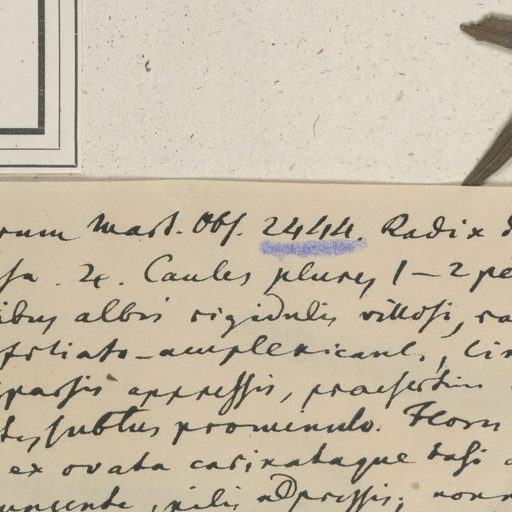 rum Mart. Obs. 2444. Radix
sa. 24. Caules plures 1-2 pe
ibus albis rigidulis villosi,
foliato-amplexicaul.,
sparsis appressis, praesertim
subtus prominulo. Flor
ex ovata carinataque basi
pilis adpressis;